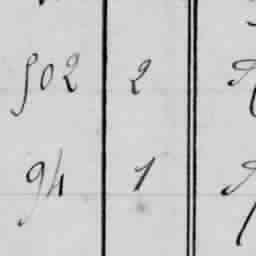 502 2
94 1